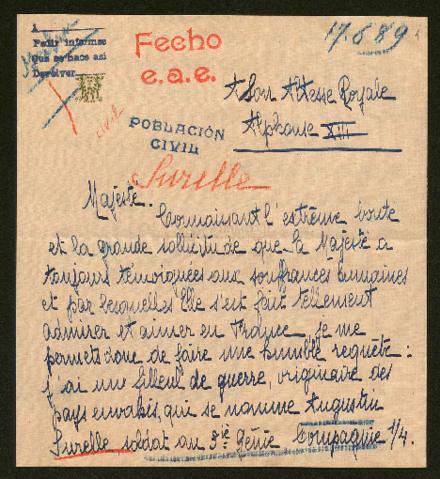 A
Pedir informes
Que se hace así
Devolver
Fecho
e.a.e.
17.689
civil
POBLACIÓN
CIVIL
A Son Altesse Royale
Alphonse XIII
Surelle
Majesté.
Connaissant l'extrême bonté
et la grande sollicitude que Sa Majesté a
toujours témoignées aux souffrances humaines
et par lesquelles Elle s'est fait tellement
admirer et aimer en France je me
permets donc de faire une humble requête :
j'ai un filleul de guerre, originaire des
pays envahis, qui se nomme Augustin
Surelle soldat au 3ie Génie Compagnie 1/4.